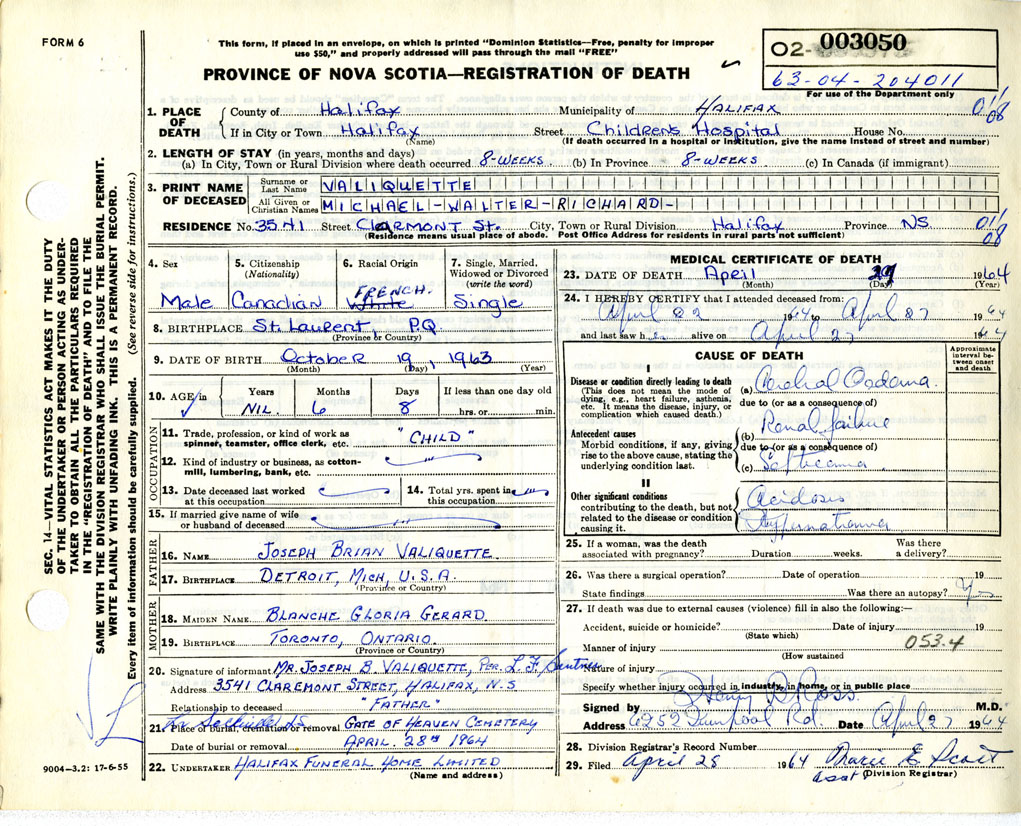 FORM 6
This form, if placed in an envelope, on which is printed "Dominion Statistics—Free, penalty for improper
use $50," and properly addressed will pass through the mail "FREE"
PROVINCE OF NOVA SCOTIA—REGISTRATION OF DEATH
02- 003050
63-04-204011
For use of the Department only
1. PLACE OF DEATH
County of Halifax Municipality of HALIFAX 01/08
If in City or Town Halifax Street Childrens Hospital House No.
(Name) (If death occurred in a hospital or institution, give the name instead of street and number)
2. LENGTH OF STAY (in years, months and days)
(a) In City, Town or Rural Division where death occurred 8-WEEKS (b) In Province 8-WEEKS (c) In Canada (if immigrant)
3. PRINT NAME OF DECEASED
Surname or Last Name VALIQUETTE
All Given or Christian Names MICHAEL-WALTER-RICHARD-
RESIDENCE No. 3541 Street CLARMONT St. City, Town or Rural Division Halifax Province NS 01/08
(Residence means usual place of abode. Post Office Address for residents in rural parts not sufficient)
4. Sex Male
5. Citizenship (Nationality) Canadian
6. Racial Origin FRENCH. White
7. Single, Married, Widowed or Divorced (write the word) Single
8. BIRTHPLACE St. Laurent, P.Q.
(Province or Country)
9. DATE OF BIRTH October 19, 1963
(Month) (Day) (Year)
10. AGE in Years NIL. Months 6 Days 8 If less than one day old hrs. or min.
OCCUPATION
11. Trade, profession, or kind of work as spinner, teamster, office clerk, etc. "CHILD"
12. Kind of industry or business, as cotton-mill, lumbering, bank, etc.
13. Date deceased last worked at this occupation
14. Total yrs. spent in this occupation
15. If married give name of wife or husband of deceased
FATHER
16. NAME JOSEPH BRIAN VALIQUETTE.
17. BIRTHPLACE DETROIT, MICH, U.S.A.
(Province or Country)
MOTHER
18. MAIDEN NAME BLANCHE GLORIA GERARD.
19. BIRTHPLACE TORONTO, ONTARIO.
(Province or Country)
20. Signature of informant MR. JOSEPH B. VALIQUETTE, PER. L. F.
Address 3541 CLAREMONT STREET, HALIFAX, N.S
Relationship to deceased "FATHER"
21. Place of burial, cremation or removal GATE OF HEAVEN CEMETERY
Date of burial or removal APRIL. 28TH 1964
22. UNDERTAKER HALIFAX FUNERAL HOME LIMITED
(Name and address)
MEDICAL CERTIFICATE OF DEATH
23. DATE OF DEATH April 27 1964
(Month) (Day) (Year)
24. I HEREBY CERTIFY that I attended deceased from:
April 22 1964 to April 27, 1964
and last saw h alive on April 27 1964
CAUSE OF DEATH
Approximate interval between onset and death
I
Disease or condition directly leading to death
(This does not mean the mode of dying, e.g., heart failure, asthenia, etc. It means the disease, injury, or complication which caused death.)
(a) Cerebral Oedema.
due to (or as a consequence of)
Antecedent causes
Morbid conditions, if any, giving rise to the above cause, stating the underlying condition last.
(b) Renal failure
due to (or as a consequence of)
(c) Septicemia
II
Other significant conditions
contributing to the death, but not related to the disease or condition causing it.
Acidosis
Hypernatremia
25. If a woman, was the death associated with pregnancy? Duration weeks. Was there a delivery?
26. Was there a surgical operation? Date of operation 19
State findings Was there an autopsy? Yes
27. If death was due to external causes (violence) fill in also the following:—
Accident, suicide or homicide? Date of injury 19
(State which)
Manner of injury 053.4
(How sustained
Nature of injury
Specify whether injury occurred in industry, in home, or in public place
Signed by Henry B. Ross M.D.
Address 6252 Rd. Date April 27 1964
28. Division Registrar's Record Number
29. Filed April 28 1964 Marie E Scott
asst (Division Registrar)
SEC. 14—VITAL STATISTICS ACT MAKES IT THE DUTY
OF THE UNDERTAKER OR PERSON ACTING AS UNDER-
TAKER TO OBTAIN ALL THE PARTICULARS REQUIRED
IN THE "REGISTRATION OF DEATH" AND TO FILE THE
SAME WITH THE DIVISION REGISTRAR WHO SHALL ISSUE THE BURIAL PERMIT.
WRITE PLAINLY WITH UNFADING INK. THIS IS A PERMANENT RECORD.
Every item of information should be carefully supplied. (See reverse side for instructions.)
9004—3.2: 17-6-55